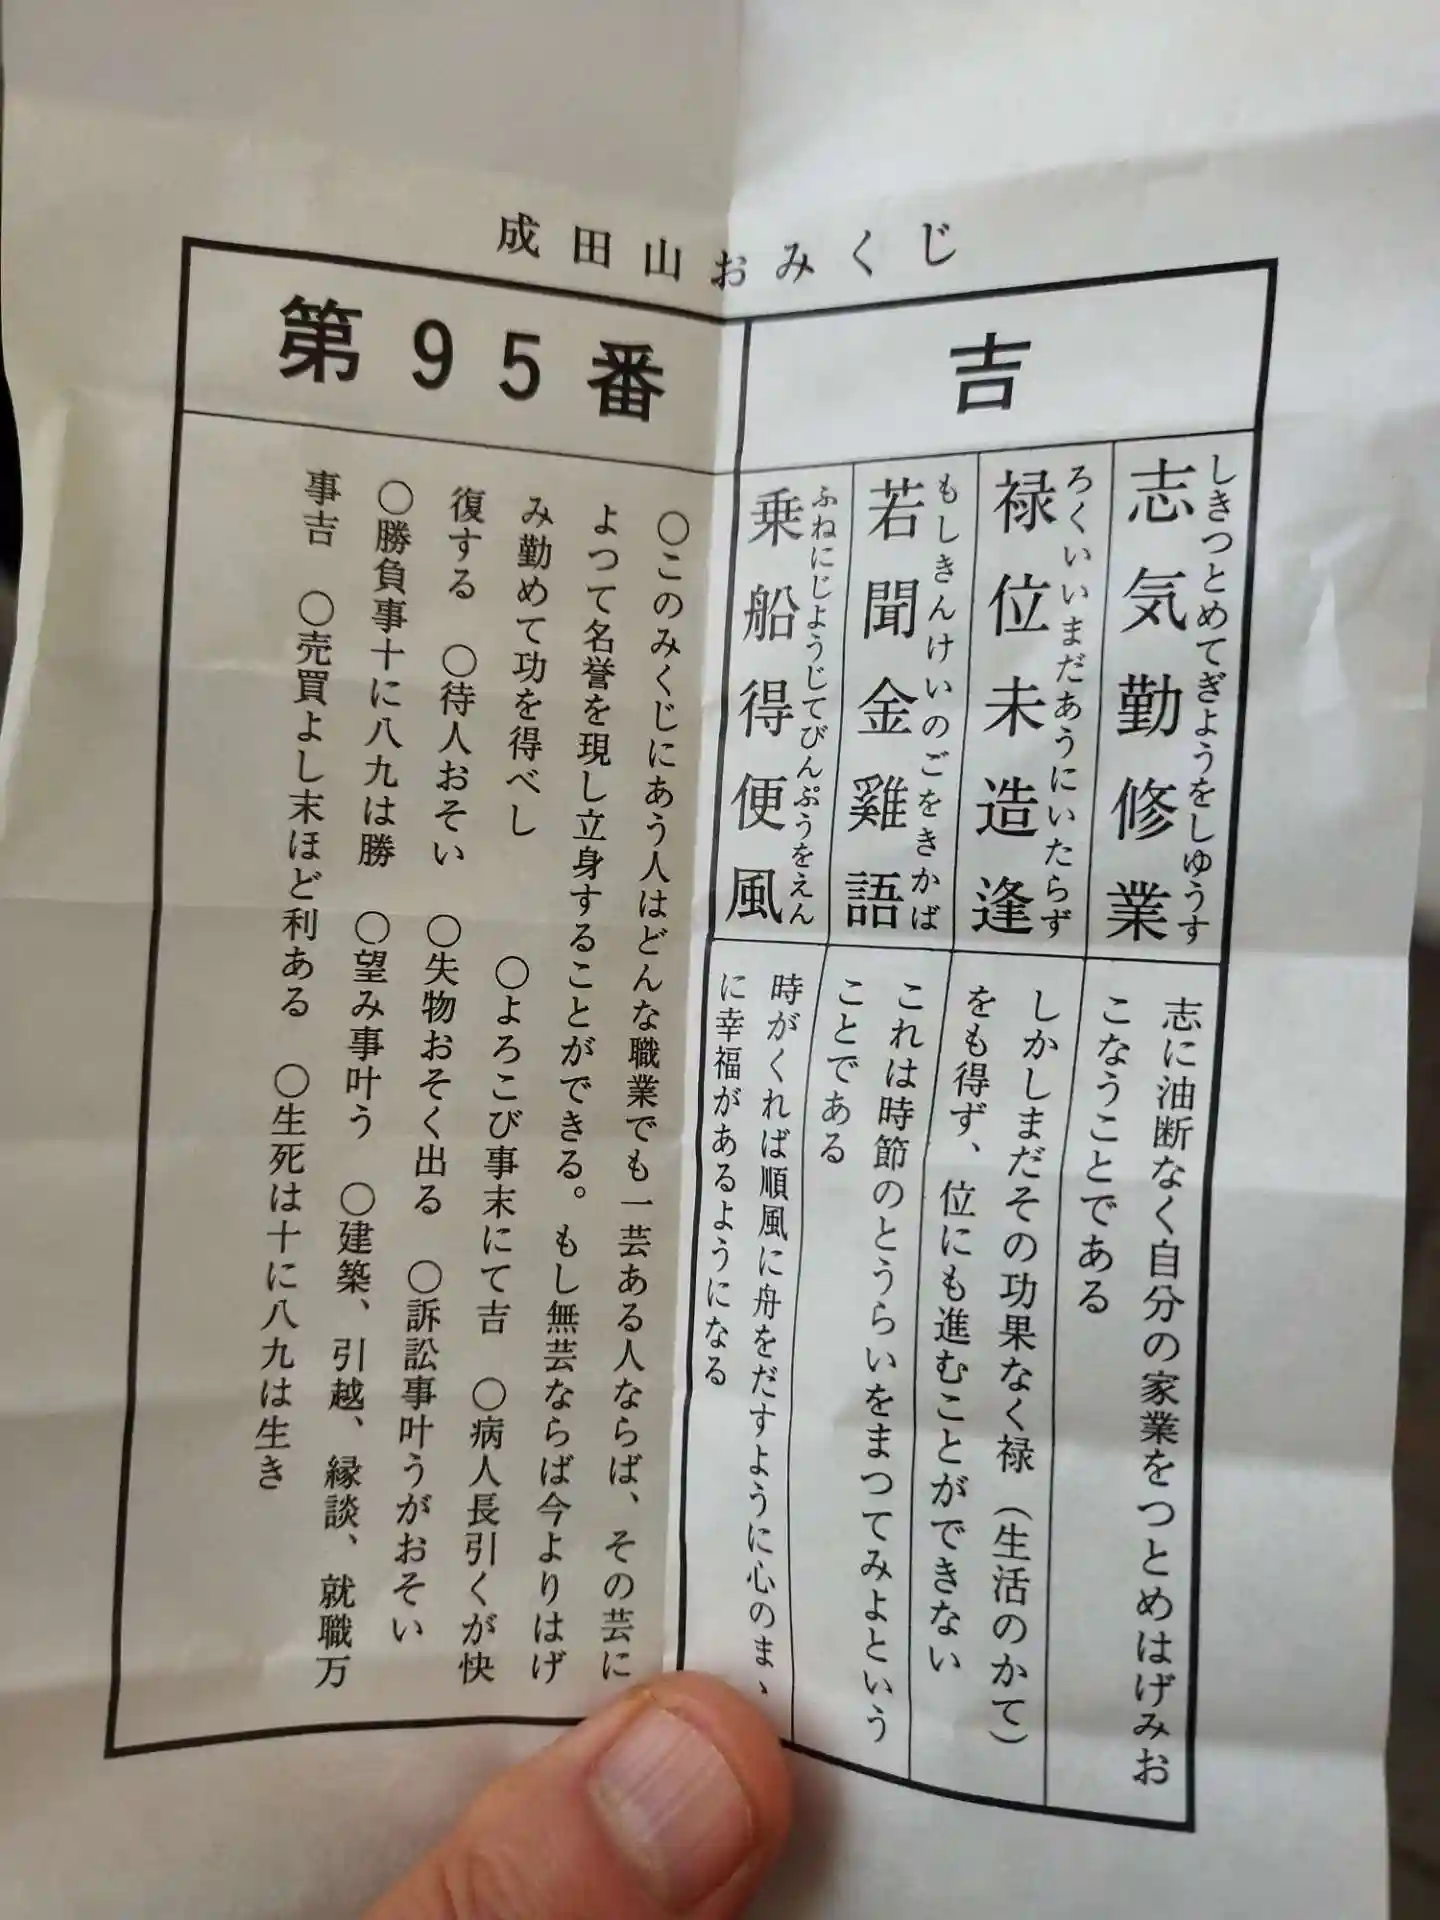 成田山おみくじ
第95番
吉
しきつとめてぎようをしゆうす
志気勤修業
志に油断なく自分の家業をつとめはげみお
こなうことである
ろくいいまだあうにいたらず
禄位未造逢
しかしまだその功果なく禄（生活のかて）
をも得ず、位にも進むことができない
もしきんけいのごをきかば
若聞金雞語
これは時節のとうらいをまつてみよという
ことである
ふねにじようじてびんぷうをえん
乗船得便風
時がくれば順風に舟をだすように心のまゝ
に幸福があるようになる
〇このみくじにあう人はどんな職業でも一芸ある人ならば、その芸に
よつて名誉を現し立身することができる。もし無芸ならば今よりはげ
み勤めて功を得べし　〇よろこび事末にて吉　〇病人長引くが快
復する　〇待人おそい　〇失物おそく出る　〇訴訟事叶うがおそい
〇勝負事十に八九は勝　〇望み事叶う　〇建築、引越、縁談、就職万
事吉　〇売買よし末ほど利ある　〇生死は十に八九は生き